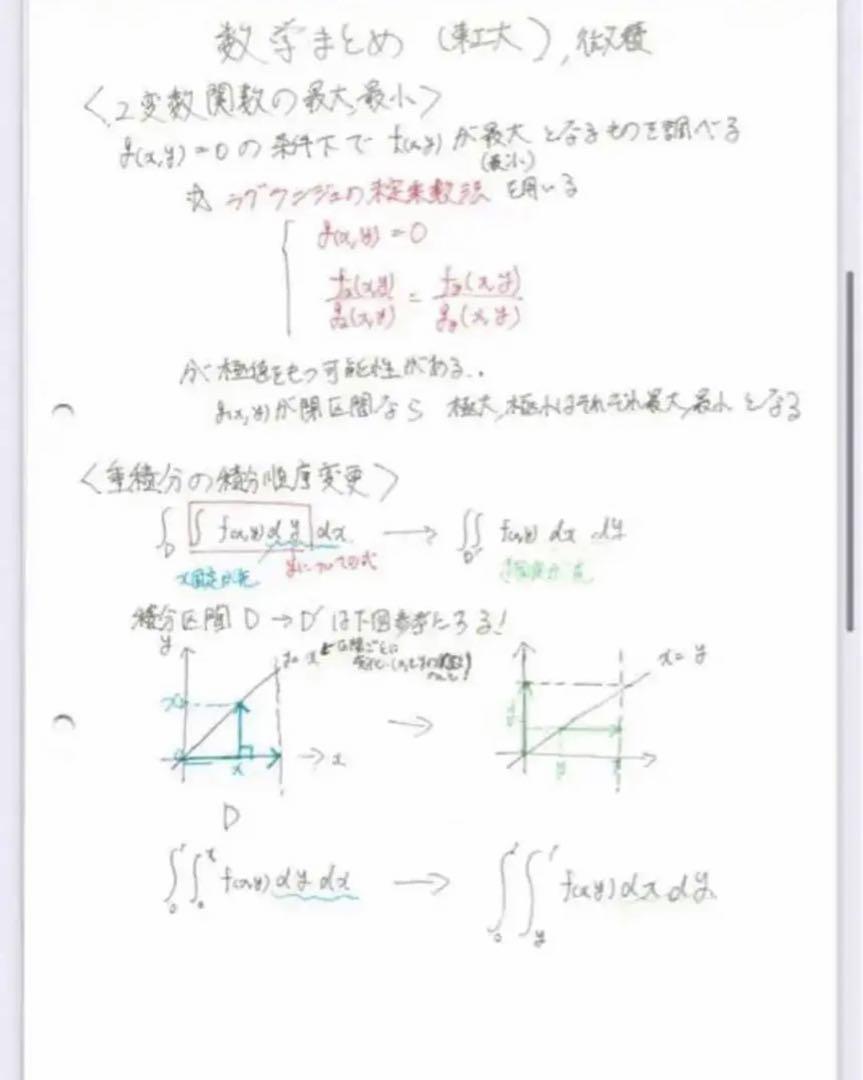 数学まとめ (東工大), 微積
<2変数関数の最大,最小>
g(x,y)=0 の 条件下で f(x,y) が最大 となるものを調べる
(最小)
ラグランジュの未定乗数法 を用いる
g(x,y)=0
fx(x,y)/gx(x,y) = fy(x,y)/gy(x,y)
が極値をもつ可能性がある..
g(x,y)が閉区間なら 極大,極小はそれぞれ最大,最小 となる
<重積分の積分順序変更>
∫D ∫ f(x,y) dy dx → ∬D' f(x,y) dx dy
x固定が先 yについての式
積分区間 D → D' は下図参考にする!
y y=x 区間ごとに
x
x → x → x=y
y
D
∫₀¹∫₀ˣ f(x,y) dy dx → ∫₀¹∫y¹ f(x,y) dx dy